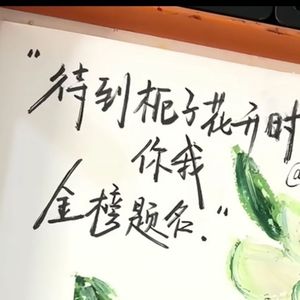 “待到栀子花开时
你我
金榜题名.”
@